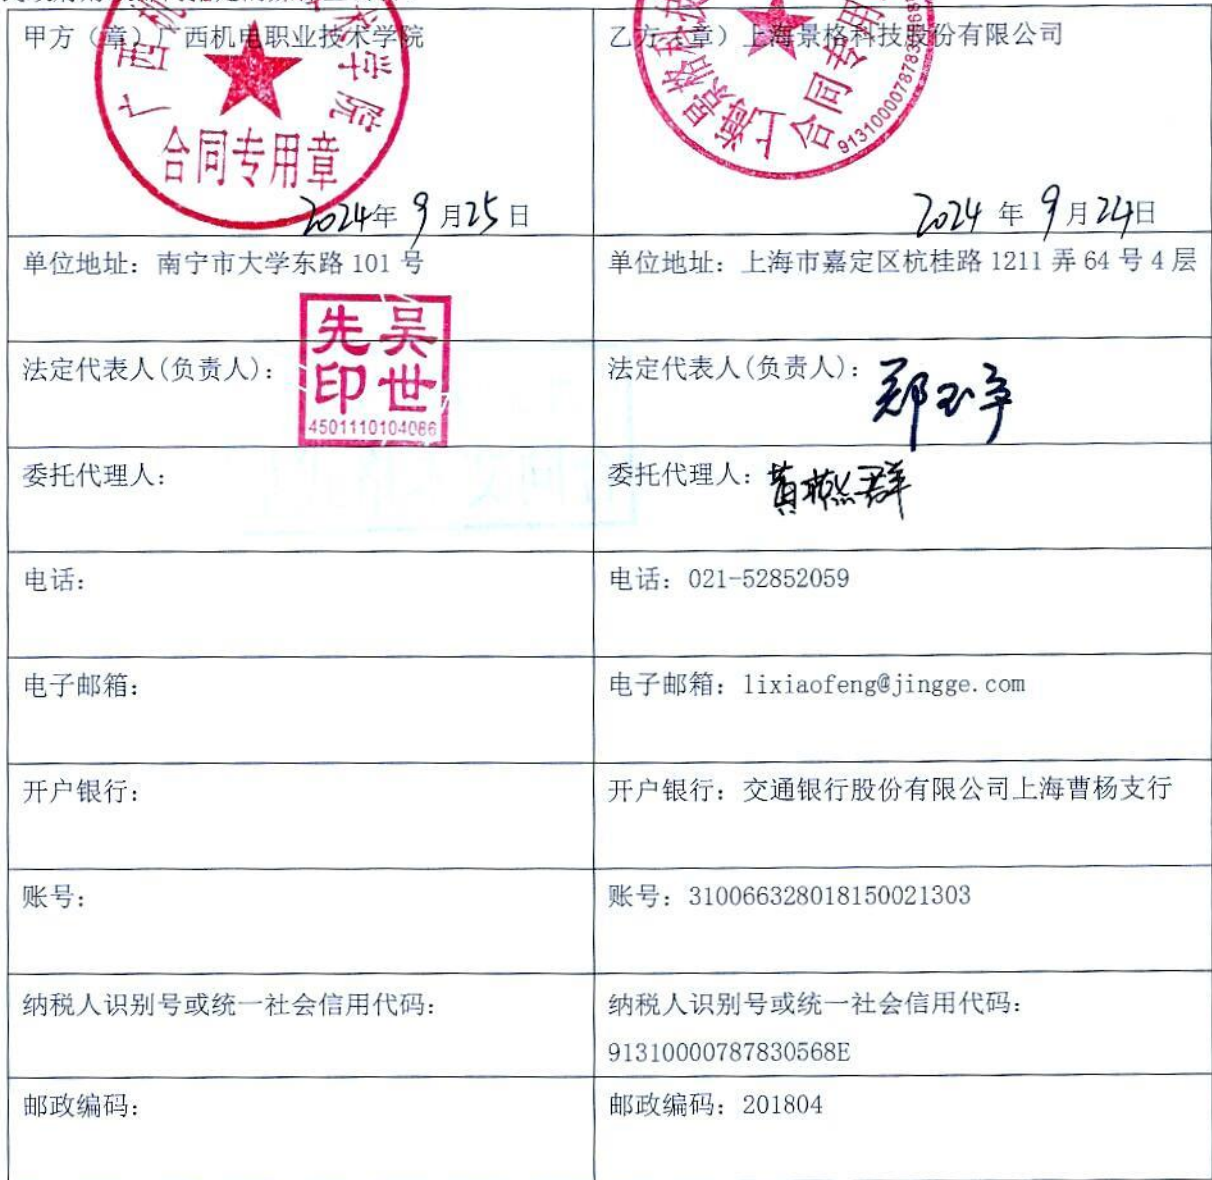 甲方（章）广西机电职业技术学院
合同专用章
2024年9月25日
乙方（章）上海景格科技股份有限公司
合同专用
2024年9月24日
单位地址：南宁市大学东路101号
单位地址：上海市嘉定区杭桂路1211弄64号4层
法定代表人(负责人)：
吴世先印
4501110104086
法定代表人(负责人)：
委托代理人：
委托代理人：黄燕群
电话：
电话：021-52852059
电子邮箱：
电子邮箱：lixiaofeng@jingge.com
开户银行：
开户银行：交通银行股份有限公司上海曹杨支行
账号：
账号：310066328018150021303
纳税人识别号或统一社会信用代码：
纳税人识别号或统一社会信用代码：
91310000787830568E
邮政编码：
邮政编码：201804